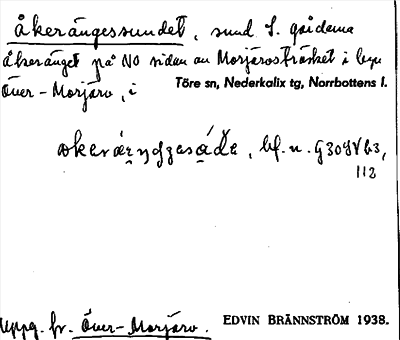 åkerängessundet, sund S. gårdarna
åkeränget på NO sidan av Morjärvsträsket i byn
Över-Morjärv, i Töre sn, Nederkalix tg, Norrbottens l.
bf. n.
112
Uppg. fr. Över-Morjärv. EDVIN BRÄNNSTRÖM 1938.